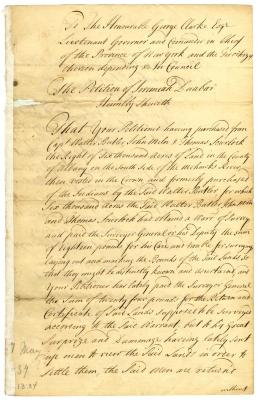 To The Honourable George Clarke Esqr
Lieutenant Governor and Comander in Chief
of the Province of New York and the Territorys
thereon depending in Council
The Petition of Jeremiah Dunbar
Humbly Sheweth
That Your Petitioner having purchased from
Capt Walter Butler, John Miln & Thomas
the Right of Six thousand acres of Land in the County
of Albany on the South side of the Mohawks River
then vested in the Crown and formerly purchased
of the Indians by the Said Walter Butler for which
Six thousand acres the Said Walter Butler
and Thomas had obtained a Warrt of Survey
and paid the Surveyor General or his Deputy the Sum
of Eighteen pounds for his Care and trouble for surveying
laying out and marking the Bounds of the Said Lands so
that they might be distinctly known and ascertained, and
Your Petitioner has lately paid the Surveyor General
the Sum of twenty four pounds for the Return and
Certificate of Said Lands Supposed to be Surveyed
according to the Said Warrant, but to his Great
Surprize and Dammage having lately sent
up men to view the Said Lands in order to
settle them, the Said men are returned
without
May